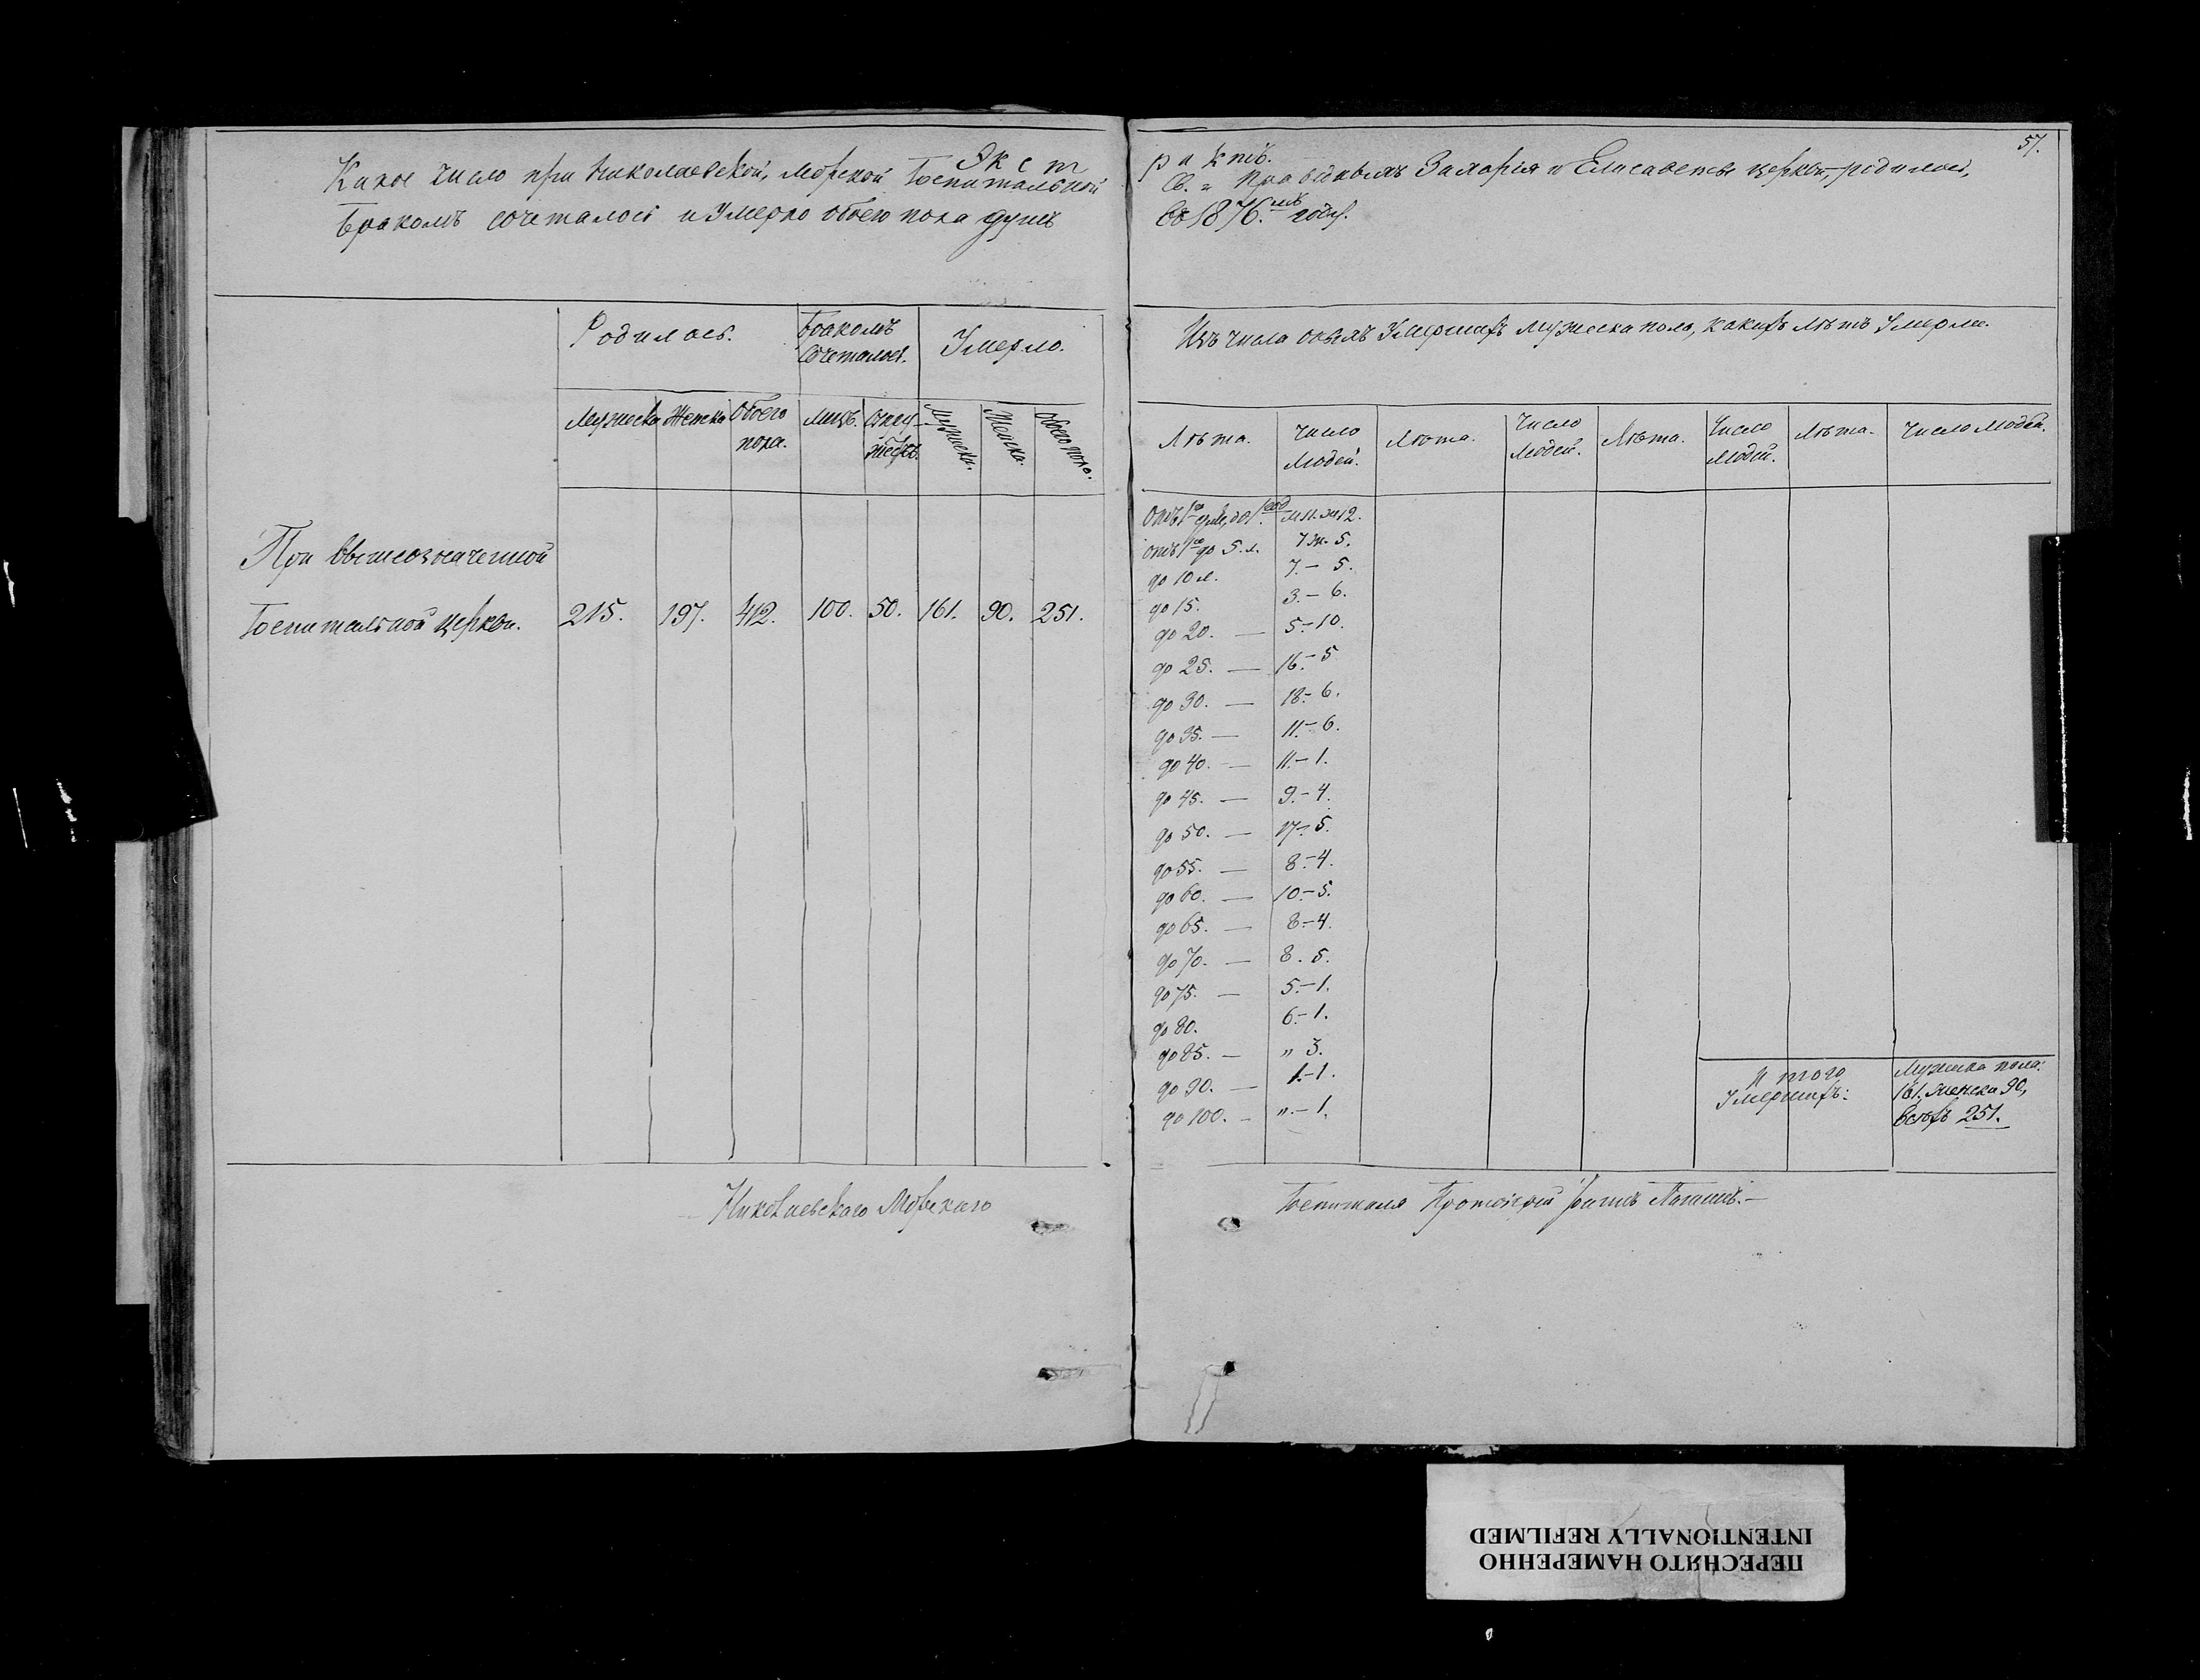 57.
Экстрактъ.
Какое число при Николаевской, Морской Госпитальной Св. Праведныхъ Захарiя и Елисаветы церкви, родилось,
бракомъ сочеталось и умерло обоего пола душъ въ 1876.мъ году.
Родилось. Бракомъ сочеталось. Умерло.
Мужеска Женска Обоего пола. Лицъ. Супружествъ. Мужеска. Женска. Обоего пола.
При вышеозначенной
Госпитальной церкви. 215. 197. 412. 100. 50. 161. 90. 251.
Изъ числа оныхъ Умершихъ мужеска пола, какихъ лѣтъ Умерли.
Лѣта. Число людей. Лѣта. Число людей. Лѣта. Число людей. Лѣта. Число людей.
Отъ 1го до 1. м 11. ж 12.
отъ 1го до 5. л. 7 ж. 5.
до 10 л. 7. – 5.
до 15. 3. – 6.
до 20. — 5. – 10.
до 25. — 16. – 5
до 30. — 18. – 6.
до 35. — 11. – 6.
до 40. — 11. – 1.
до 45. — 9. – 4.
до 50. — 17. – 5.
до 55. — 8. – 4.
до 60. — 10. – 5.
до 65. — 8. – 4.
до 70. — 8. 5.
до 75. — 5. – 1.
до 80. 6. – 1.
до 85. — " 3.
до 90. — 1. – 1.
до 100. – ". – 1.
Итого Умершихъ: Мужеска пола:
161. женска 90,
всѣхъ 251.
Николаевскаго Морскаго Госпиталя Протоiерей
ПЕРЕСНЯТО НАМЕРЕННО
INTENTIONALLY REFILMED